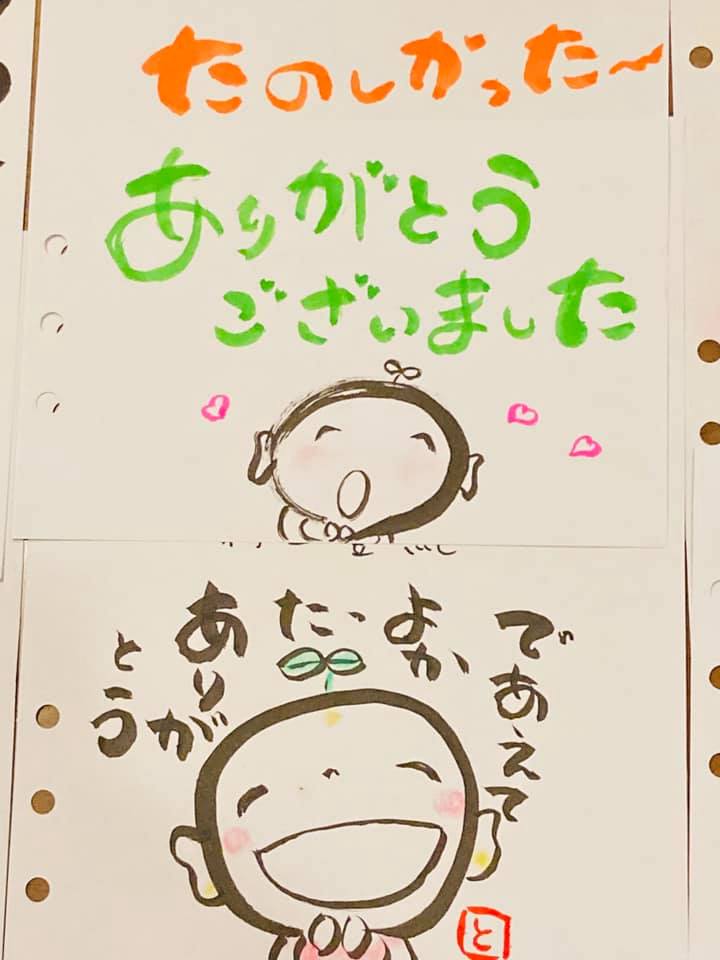 たのしかった〜
ありがとう
ございました
であえて
よかった
ありがとう
と